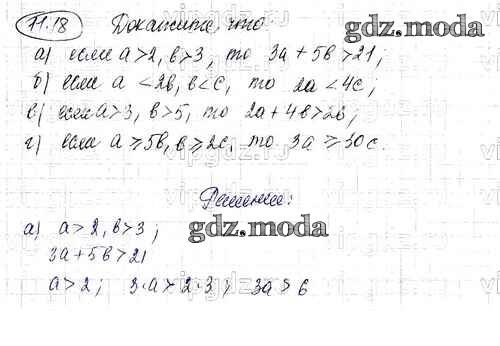 11.18 Докажите, что
gdz.modkom
а) если a > 2, b > 3, то 3a + 5b > 21;
б) если a < 2b, b < c, то 2a < 4c;
в) если a > 3, b > 5, то 2a + 4b > 26;
г) если a ⩾ 5b, b ⩾ 2c, то 3a ⩾ 30c.
Решение:
gdz.modkom
а) a > 2, b > 3;
3a + 5b > 21
a > 2; 3·a > 2·3; 3a > 6